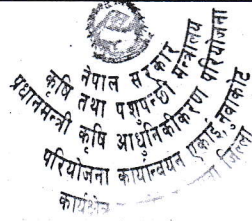 नेपाल सरकार
कृषि तथा पशुपन्छी मन्त्रालय
प्रधानमन्त्री कृषि आधुनिकीकरण परियोजना
परियोजना कार्यान्वयन एकाई, नुवाकोट
कार्यक्षेत्र
जिल्ला